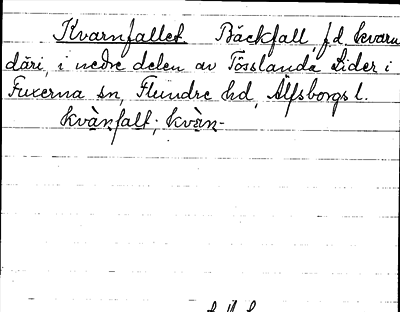 Kvarnfallet Bäckfall, f.d. kvarn
däri, i nedre delen av Tösslanda Lider i
Fuxerna sn, Flundre hd, Älfsborgs l.
kvànfalt; kvàn-